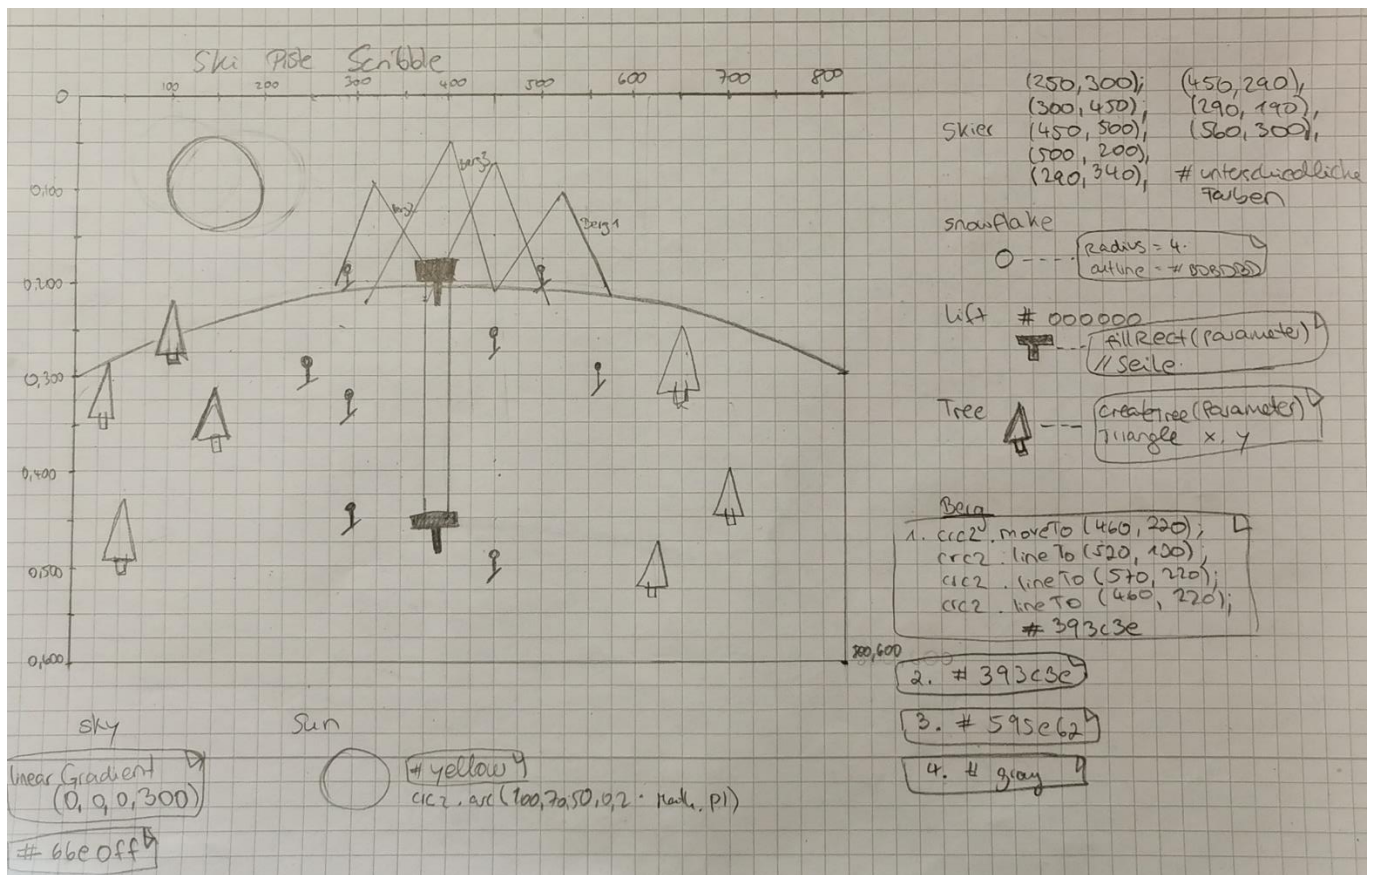 Ski Piste Scribble
0 100 200 300 400 500 600 700 800
0,100
0,200
0,300
0,400
0,500
0,600
Berg3
Berg1
800,600
Skier
(250,300); (450,290),
(300,450); (290,190),
(450,500), (560,300),
(500,200),
(290,340), # unterschiedliche
Farben
snowflake
Radius = 4.
outline = #BDBDBD
Lift # 000000
fillRect(parameter)
// Seile.
Tree
createTree(Parameter)
Triangle x, y
Berg
1. crc2.moveTo (460, 220);
crc2.lineTo (520, 100);
crc2.lineTo (570, 220);
crc2.lineTo (460, 220);
# 393c3e
2. # 393c3e
3. # 595e62
4. # gray
Sky
linear Gradient
(0, 0, 0, 300)
# 66e0ff
Sun
# yellow
crc2.arc(100,70,50,0,2 · Math.PI)